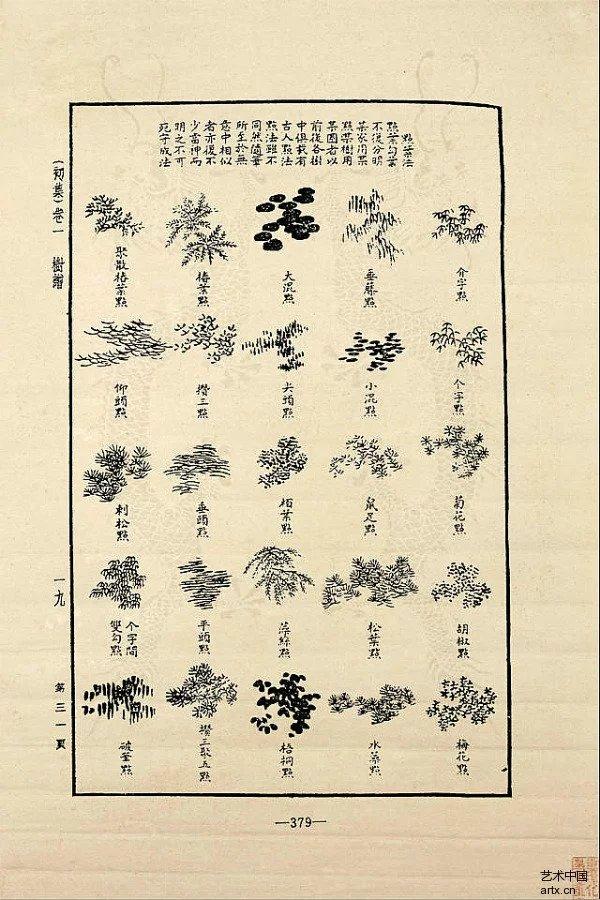 點葉法
點葉勾葉
不復分明
某家用某
點某樹用
某圈者以
前後各樹
中俱載有
古人點法
點法雖不
同然隨筆
所至於無
意中相似
者亦復不
少當神而
明之不可
死守成法
介字點
垂藤點
大混點
椿葉點
聚散椿葉點
个字點
小混點
尖頭點
攢三點
仰頭點
菊花點
鼠足點
栢葉點
垂頭點
刺松點
胡椒點
松葉點
藻絲點
平頭點
个字間
雙勾點
梅花點
水藻點
梧桐點
攢三聚五點
破筆點
(初集)卷一 樹譜
一九
第三一頁
—379—
艺术中国
artx.cn